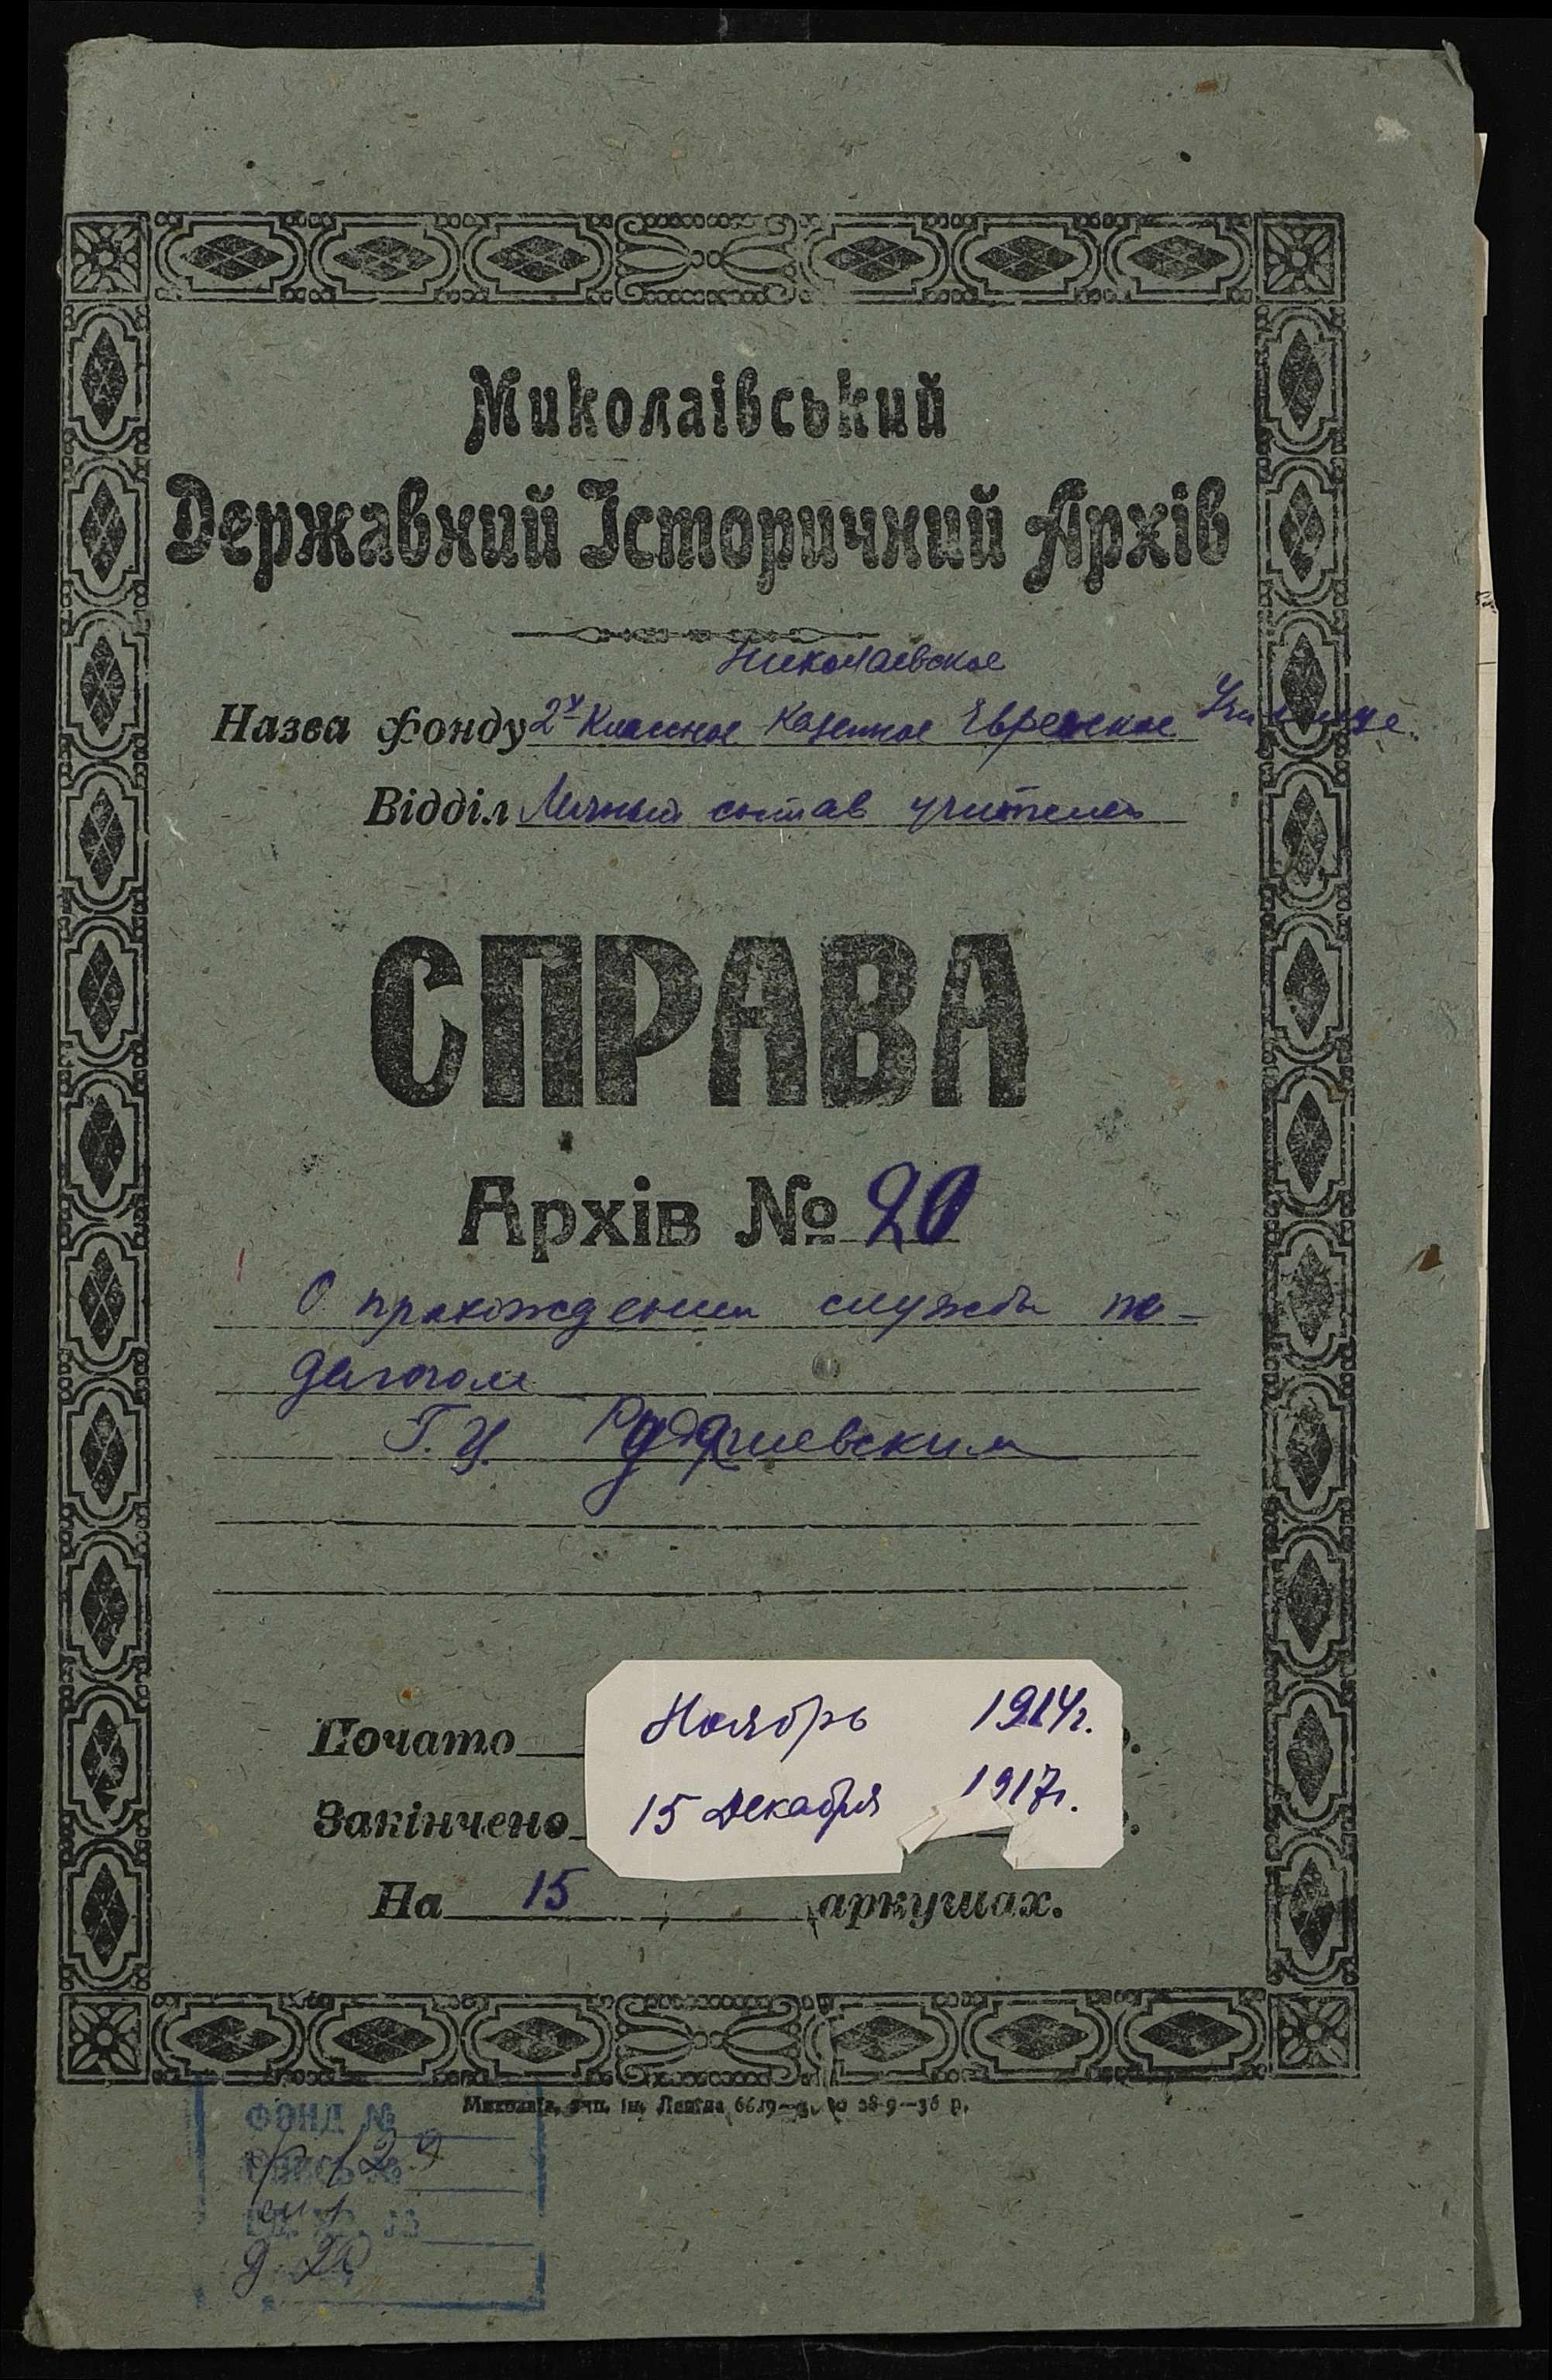 Миколаівський
Державний Історичний Архів
Николаевское
Назва фонду 2х Классное Казенное Еврейское Училище.
Відділ Личный состав учителей
СПРАВА
Архів № 20
О прохождении службы пе-
дагогом
Г. И.
Почато Ноябрь 1914 г.
Закінчено 15 Декабря 1917 г.
На 15 аркушах.
Миколаїв, ім. Леніна 6619
ФОНД №
ф 129
оп 1
д. 20